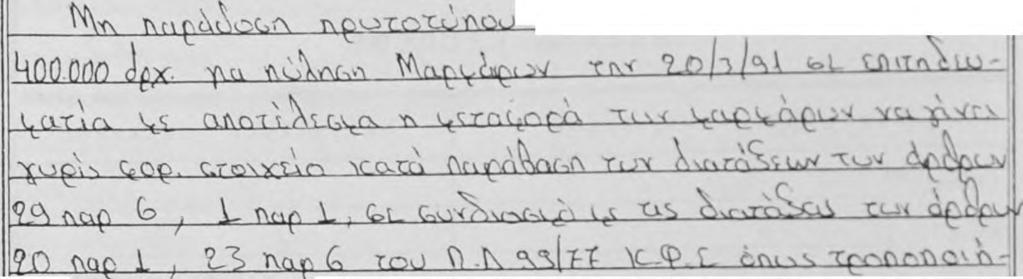 Μη παράδοση πρωτοτύπου
400.000 δρχ. για πώληση Μαρμάρων την 20/3/91 σε επιτηδευ-
ματία με αποτέλεσμα η μεταφορά των μαρμάρων να γίνει
χωρίς φορ. στοιχείο κατά παράβαση των διατάξεων των άρθρων
29 παρ 6, 1 παρ 1, σε συνδιασμό με τις διατάξεις των άρθρων
20 παρ 1, 23 παρ 6 του Π.Δ 99/77 Κ.Φ.Σ όπως τροποποιή-